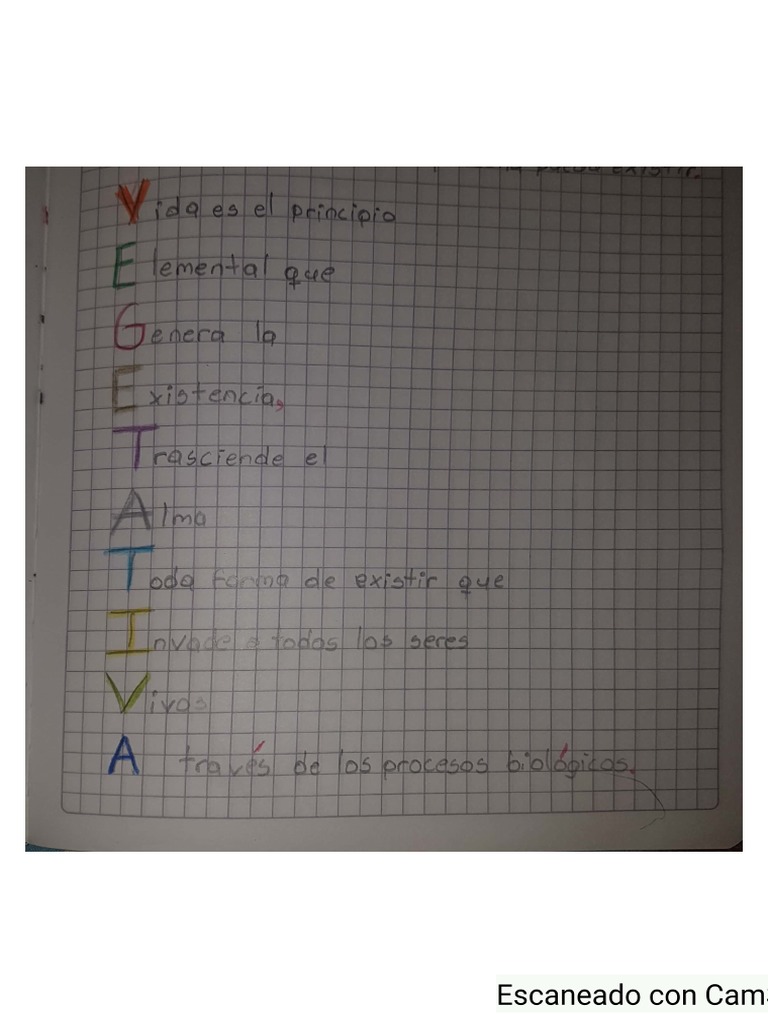 existir.
Vida es el principio
Elemental que
Genera la
Existencia,
Trasciende el
Alma
Toda forma de existir que
Invade a todos los seres
Vivos
A través de los procesos biológicos.
Escaneado con CamS